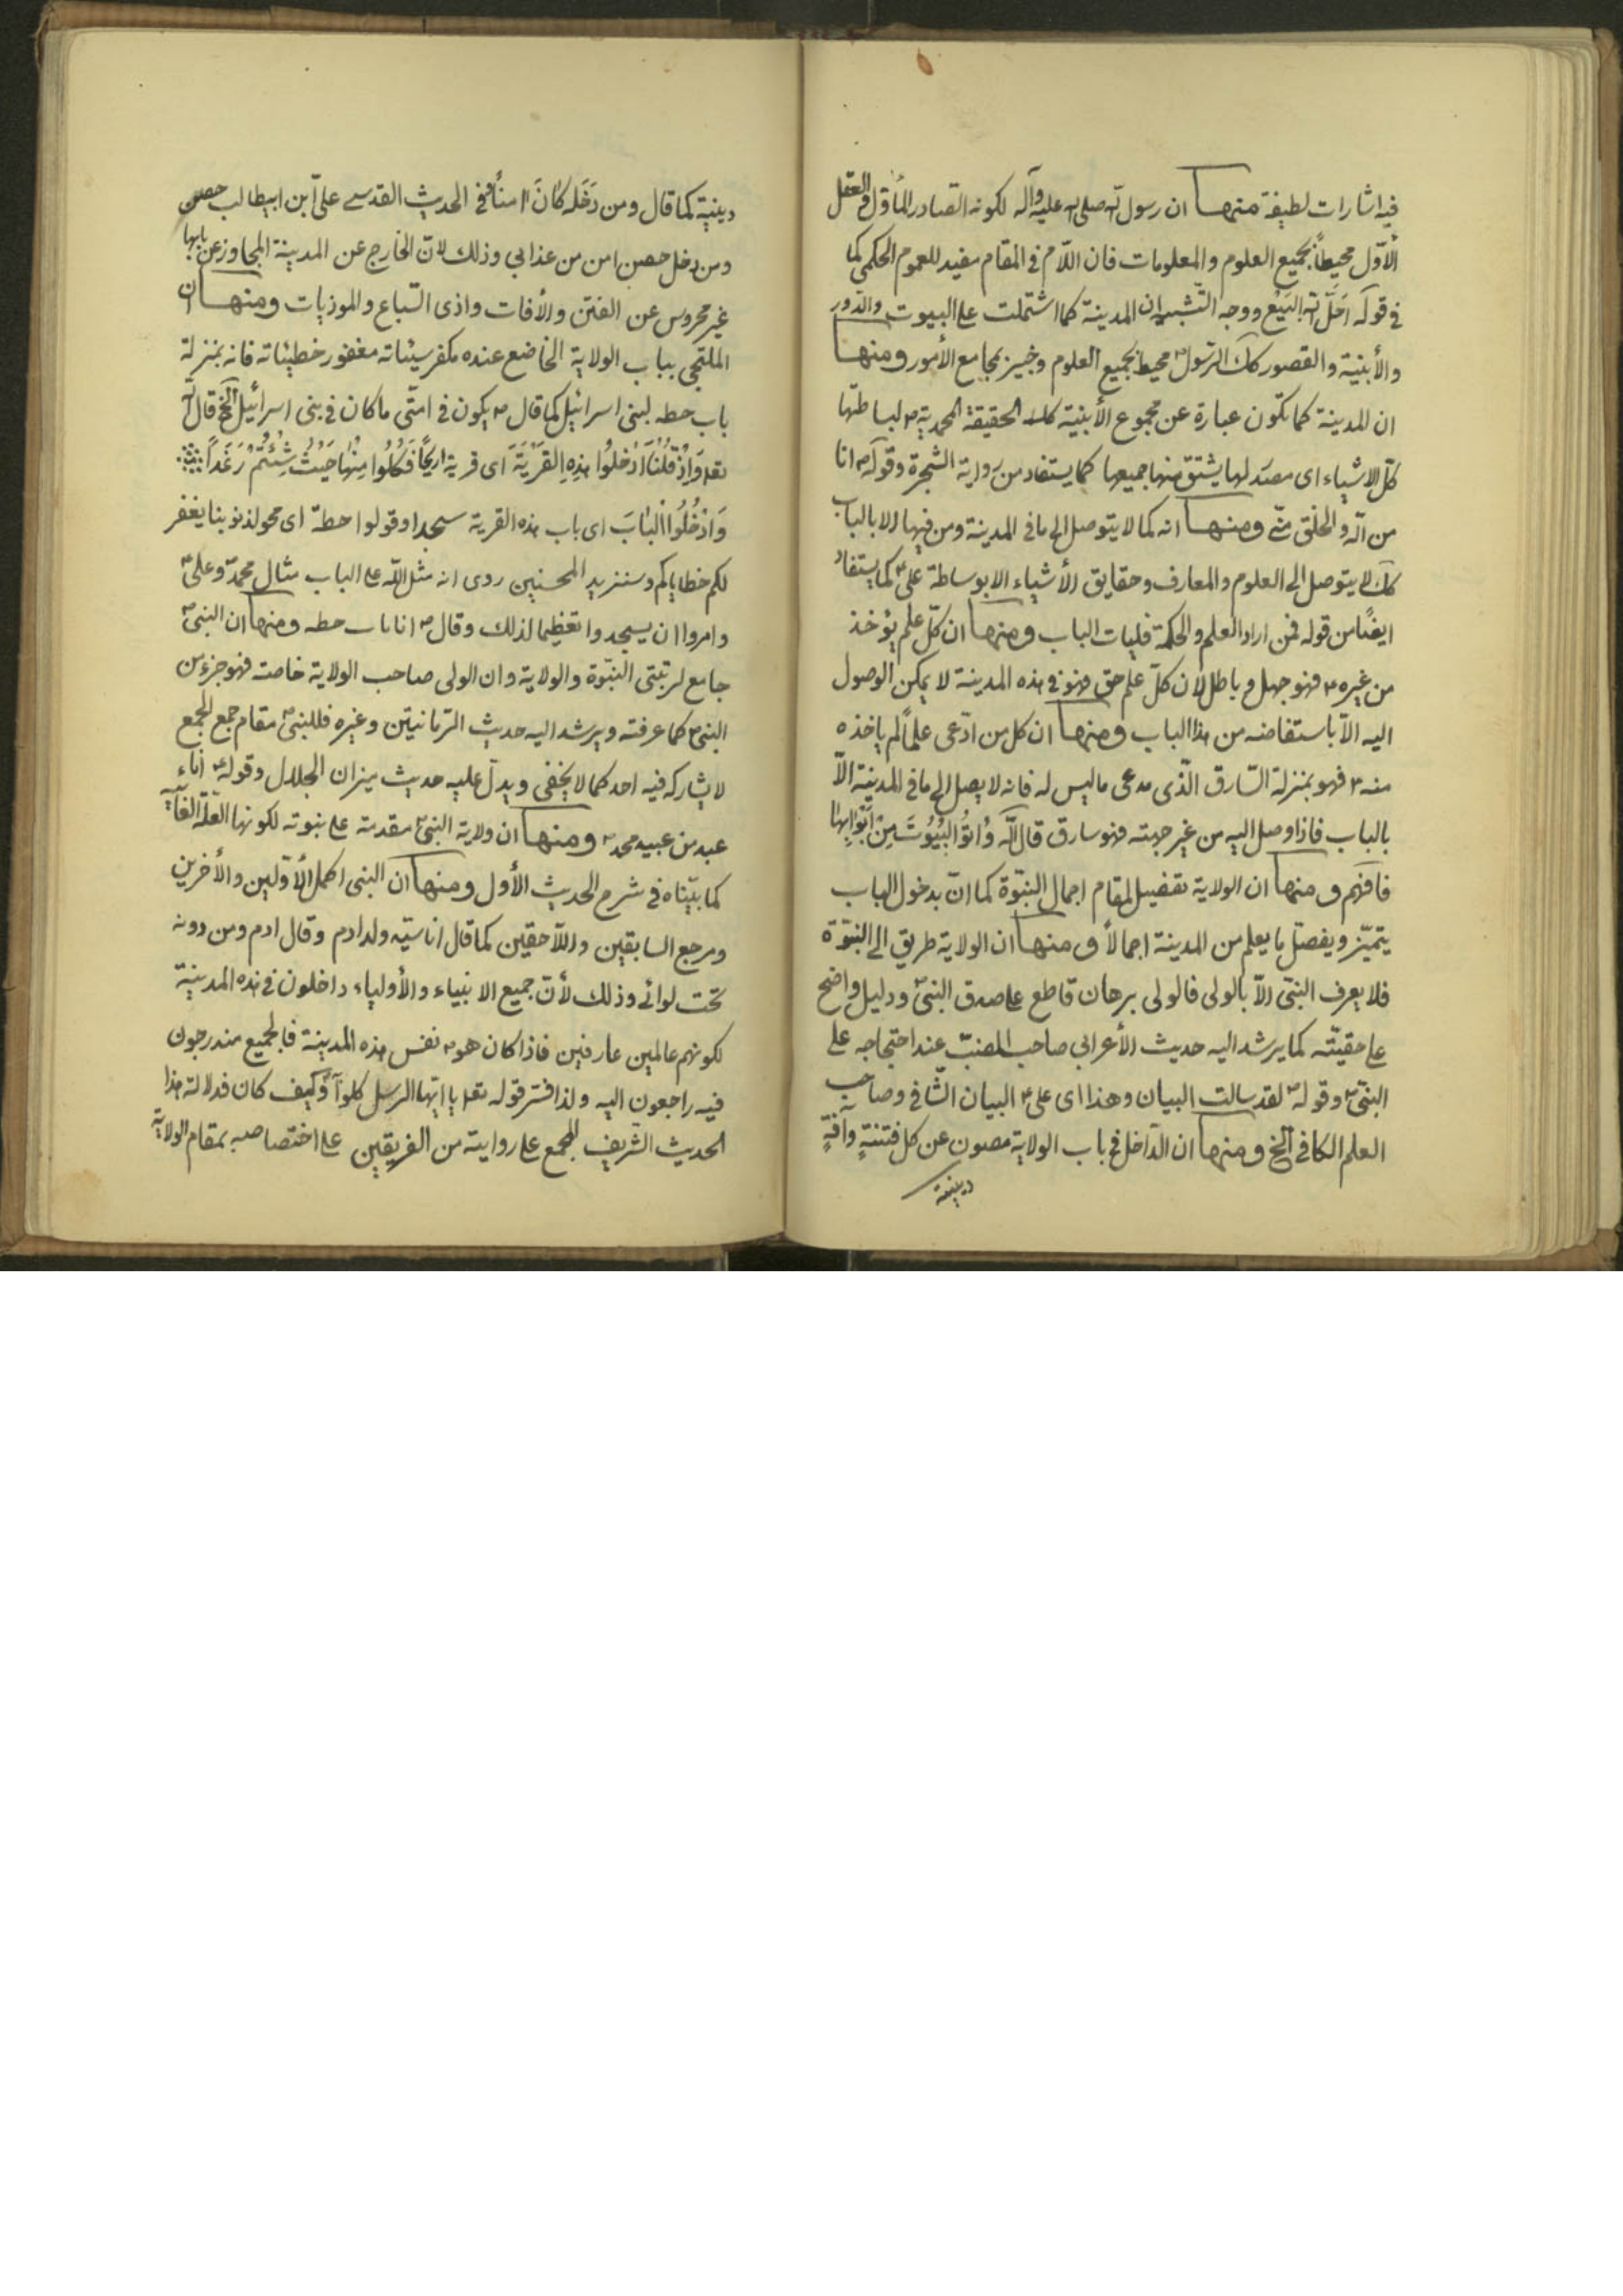 فيه اشارات لطيفة منها ان رسول الله صلى الله عليه وآله لكونه الصادر الأول والعقل
الأوّل محيطاً بجميع العلوم والمعلومات فان اللّام فى المقام مفيد للعموم الحكمى كما
فى قوله احَلّ الله البَيْع ووجه التّشبيه ان المدينة كما اشتملت على البيوت والدّور
والأبنية والقصور كك الرّسول ص محيط بجميع العلوم وخبير بمجامع الأمور ومنها
ان المدينة كما تكون عبارة عن مجموع الأبنية كذلك الحقيقة المحمدية ص لبساطتها
كلّ الاشياء اى مصدر لها يشتق منها جميعها كما يستفاد من رواية الشجرة وقوله ص انا
من الله والخلق منّى ومنها انه كما لا يتوصل الى ما فى المدينة ومن فيها الا بالباب
كك لا يتوصل الى العلوم والمعارف وحقايق الأشياء الا بوساطة على ع كما يستفاد
ايضًا من قوله فمن اراد العلم والحكمة فليات الباب ومنها ان كلّ علم يؤخذ
من غيره ع فهو جهل وباطل لأن كلّ علم حق فهو فى هذه المدينة لا يمكن الوصول
اليه الاّ باستفاضه من هذا الباب ومنها ان كل من ادّعى علماً لم ياخذه
منه ع فهو بمنزلة السّارق الّذى مدعى ما ليس له فانه لا يصل الى ما فى المدينة الاّ
بالباب فاذا وصل اليه من غير جهته فهو سارق قال الله وُاتوُا البُيُوتَ مِنْ ابَوْابِها
فافهم ومنها ان الولاية تفضيل لمقام اجمال النبّوة كما انّ بدخول الباب
يتميّز ويفصّل ما يعلم من المدينة اجمالاً ومنها ان الولاية طريق الى النبوّة
فلا يعرف النبّى الاّ بالولى فالولى برهان قاطع على صدق النبىّ ص ودليل واضح
على حقيّته كما يرشد اليه حديث الأعرابى صاحب الضبّ عند احتجاجه على
النبّى ص وقوله ص لقد سالت البيان وهذا اى على ع البيان الشّافى وصاحب
العلم الكافى الخ ومنها ان الدّاخل فى باب الولاية مصون عن كل فتنةٍ وآفةٍ
دينية
دينية كما قال ومن دَخَله كٰانَ امنأ وفى الحديث القدسى علىّ ابن ابيطالب حصنى
ومن دخل حصنى امن من عذابى وذلك لانّ الخارج عن المدينة المجاوز عن بابها
غير محروس عن الفتن والأفات واذى السّباع والموذيات ومنها ان
الملتجى بباب الولاية الخاضع عنده مكفر سيئاته مغفور خطيئاته فانه بمنزلة
باب حطه لبنى اسرائيل كما قال ص يكون فى امتّى ما كان فى بنى اسرائيل الخ قال الله
تعه وَاِذْ قُلْنَا ادْخلُوا هٰذِهِ القَرْيَةَ اى قرية اريحاً فَكُلُوا مِنْهٰا حَيْثُ شِئْتُمْ رَغَداً
وَادْخُلُوا الْبٰابَ اى باب هذه القرية سجدا وقولوا حطّة اى محو لذنوبنا يغفر
لكم خطاياكم وسنزيد المحسنين روى انه مثل الله على الباب مثال محمدّ وعلى ع
وامروا ان يسجدوا تعظيما لذلك وقال ص انا باب حطه ومنها ان النبى ص
جامع لرتبتى النبّوة والولاية وان الولى صاحب الولاية خاصة فهو جزء من
النبى ص كما عرفته ويرشد اليه حديث الرّمانيتن وغيره فللنبى ص مقام جمع الجمع
لا يشاركه فيه احد كما لا يخفى ويدلّ عليه حديث ميزان الجلال وقوله ع انا
عبد من عبيد محمد ص ومنها ان ولاية النبى ص مقدمة على نبوته لكونها العلّة الغائيه
كما بيّناه فى شرح الحديث الأول ومنها ان النبى اكمل الأوّلين والأخرين
ومرجع السابقين واللّاحقين كما قال انا سيّد ولد ادم وقال ادم ومن دونه
تحت لوائى وذلك لأنّ جميع الانبياء والأولياء داخلون فى هذه المدينة
لكونهم عالمين عارفين فاذا كان هو ص نفس هذه المدينة فالجميع مندرجون
فيه راجعون اليه ولذا فسّر قوله تعه يا ايّها الرسل كلوا وكيف كان فدلالة هذا
الحديث الشّريف المجمع على روايته من الفريقين على اختصاصه بمقام الولاية